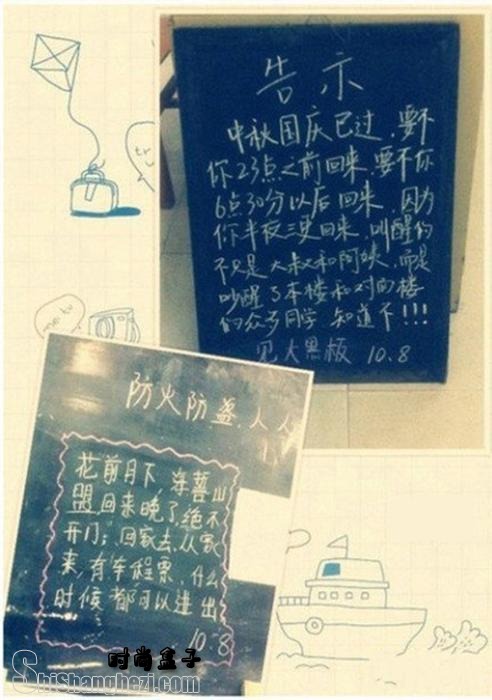 告示
中秋国庆已过，要不
你23点之前回来，要不你
6点30分以后回来，因为
你半夜三更回来，叫醒的
不只是大叔和阿姨，而是
吵醒了本楼和对面楼
的众多同学 知道不!!!
见大黑板 10.8
防火防盗，人人
花前月下 海誓山
盟，回来晚了，绝不
开门；回家去，从家
来，有车程票，什么
时候都可以进出
10.8
时尚盒子
ShiShanghezi.com